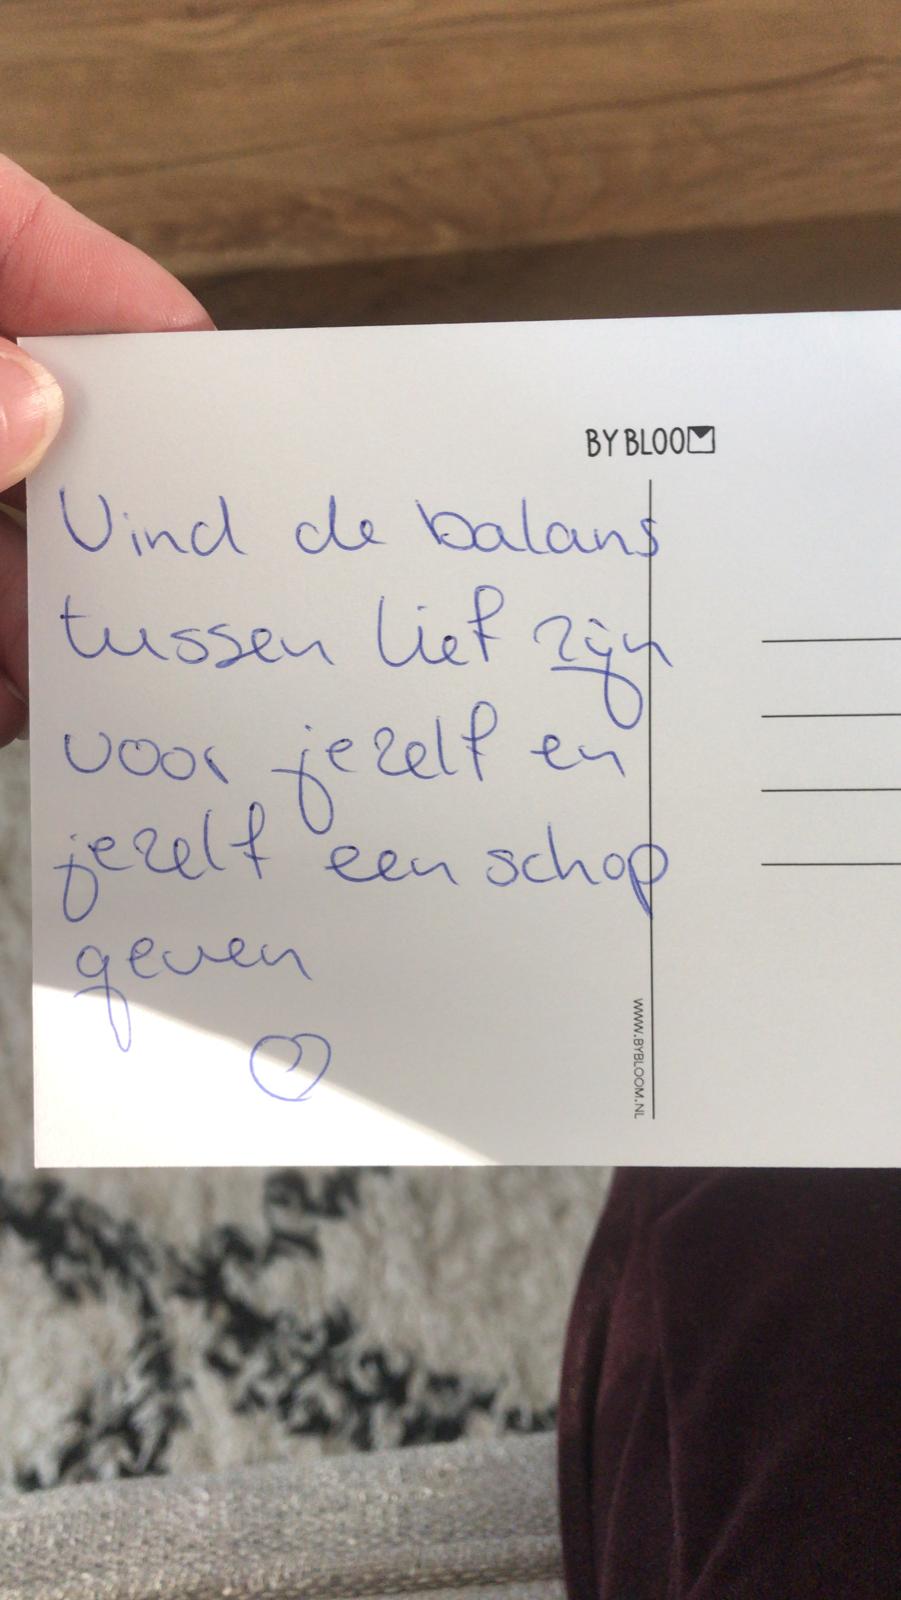 BY BLOOM
Vind de balans
tussen lief zijn
voor jezelf en
jezelf een schop
geven
WWW.BYBLOOM.NL